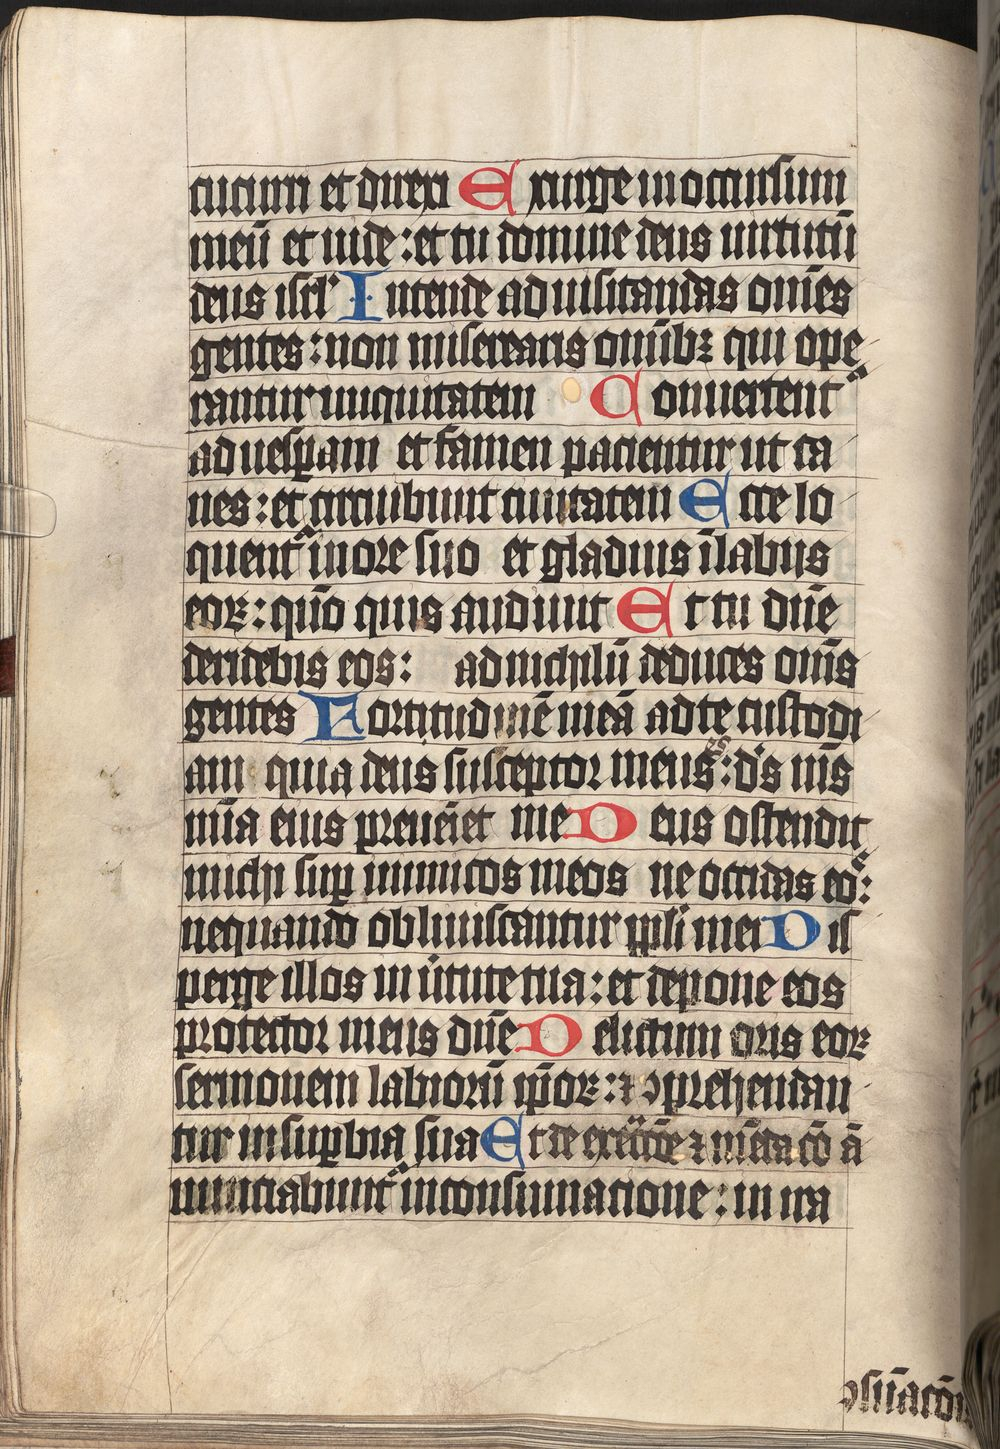 cucurri et direxi Exurge in occursum
meū et uide : et tu domine deus uirtutū
deus isrl' Intende ad uisitandas om̄es
gentes : non miserearis omībꝫ qui ope
rantur iniquitatem Conuertent᷑
ad uesꝑam et famen pacientur ut ca
nes : et circuibunt ciuitatem Ecce lo
quent᷑ in ore suo et gladius ī labiis
eoꝝ : qūo quis audiuit Et tu dn̄e
deridebis eos : ad nichilū deduces om̄s
gentes Fortitudinē meā ad te custodi
am quia deus susceptor meus es : d's m̄s
mīa eius preueīet me Deus ostendit
michi suꝑ inimicos meos ne occidas eos :
nequando obliuiscantur ppl'i mei Dis
perge illos in ūtute tua : et depone eos
protector meus dn̄e Delictum oris eoꝝ
sermonem labiorū ip̄oꝝ : ⁊ ꝯprehendan
tur in suꝑbia sua Et de exēc̄c̄oe ⁊ mēdacō ā
nunciabunt᷑ in consumacione : in ira
ꝯsūacōi